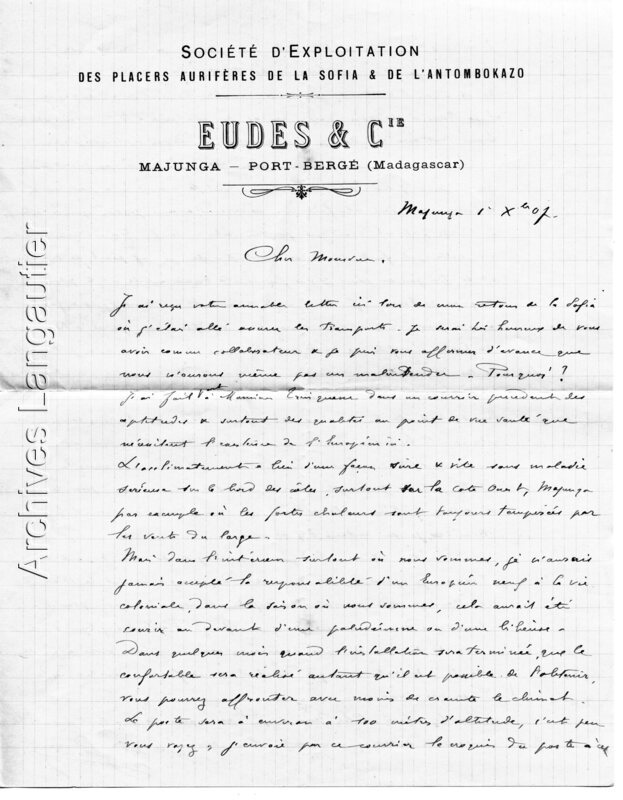 SOCIÉTÉ D'EXPLOITATION
DES PLACERS AURIFÈRES DE LA SOFIA & DE L'ANTOMBOKAZO
EUDES & CIE
MAJUNGA – PORT-BERGÉ (Madagascar)
Majunga 1er Xbre 07.
Cher Monsieur.
J'ai reçu votre aimable lettre ici lors de mon retour de la Sofia
où j'étais allé assurer les transports. Je serai très heureux de vous
avoir comme collaborateur & je puis vous affirmer d'avance que
nous n'aurons même pas un malentendu. Pourquoi?
J'ai fait à Monsieur dans un courrier précédent des
aptitudes & surtout des qualités au point de vue santé que
nécessitent l'existence de l'Européen ici.
L'acclimatement a lieu d'une façon sûre & vite sans maladie
sérieuse sur le bord des côtes, surtout sur la côte Ouest, Majunga
par exemple où les fortes chaleurs sont toujours tempérées par
les vents du large.
Mais dans l'intérieur surtout où nous sommes, je n'aurais
jamais accepté la responsabilité d'un Européen neuf à la vie
coloniale, dans la saison où nous sommes, cela aurait été
courir au devant d'une paludéenne ou d'une bilieuse.
Dans quelques mois quand l'installation sera terminée, que le
confortable sera réalisé autant qu'il est possible de l'obtenir,
vous pourrez affronter avec moins de crainte le climat.
Le poste sera à environ à 100 mètres d'altitude, c'est peu
vous voyez, j'envoie par ce courrier le croquis du poste à
Archives Langautier